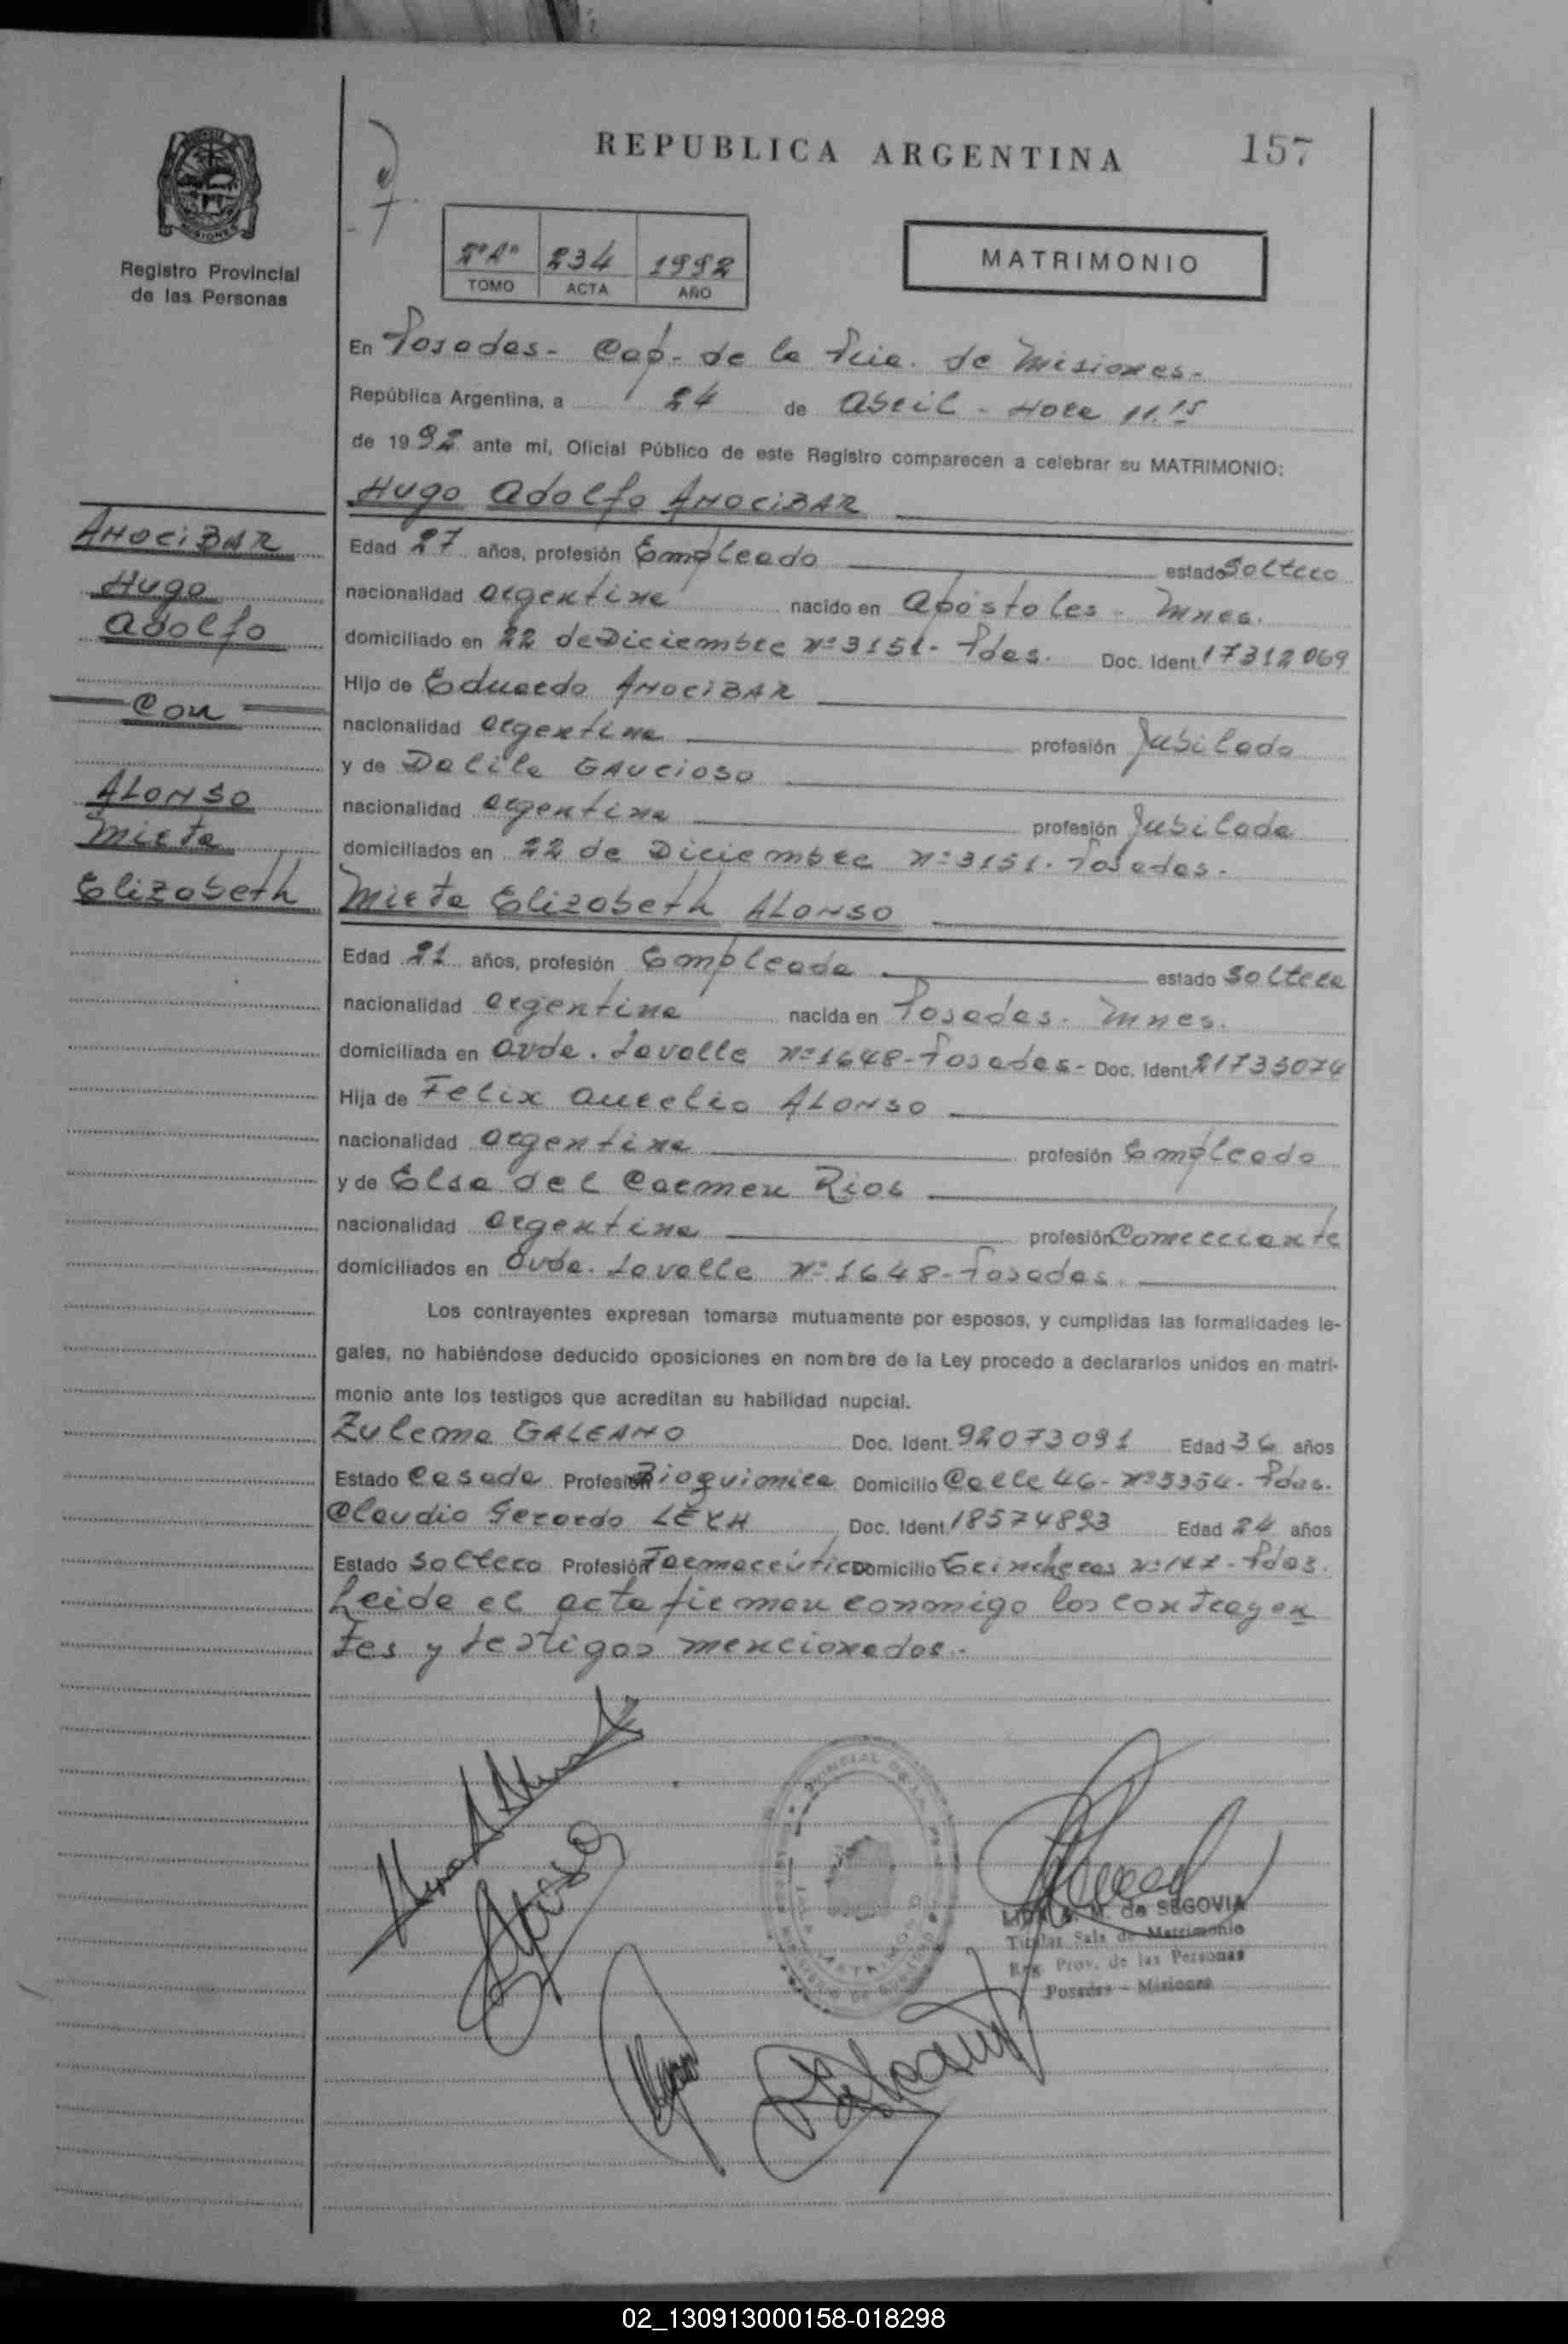 REPUBLICA ARGENTINA
157
MISIONES
Registro Provincial
de las Personas
2º "A" 234 1992
TOMO ACTA AÑO
MATRIMONIO
En Posadas - Cap - de la Pcia. de Misiones -
República Argentina, a 24 de Abril - Hora 11.15
de 1992 ante mí, Oficial Público de este Registro comparecen a celebrar su MATRIMONIO:
Hugo Adolfo ANOCIBAR
ANOCIBAR
Hugo
Adolfo
Con
ALONSO
Mirta
Elizabeth
Edad 27 años, profesión Empleado estado Soltero
nacionalidad argentina nacido en Apóstoles - Mnes.
domiciliado en 22 de Diciembre Nº 3151 - Pdas. Doc. Ident. 17312069
Hijo de Eduardo ANOCIBAR
nacionalidad argentina profesión Jubilado
y de Dalila GAUCIOSO
nacionalidad argentina profesión Jubilada
domiciliados en 22 de Diciembre Nº 3151 - Posadas -
Mirta Elizabeth ALONSO
Edad 21 años, profesión Empleada estado Soltera
nacionalidad argentina nacida en Posadas - Mnes.
domiciliada en Avda. Lavalle Nº 1648 - Posadas - Doc. Ident. 21733074
Hija de Felix Aurelio ALONSO
nacionalidad argentina profesión Empleado
y de Elsa del Carmen Rios
nacionalidad argentina profesión Comerciante
domiciliados en Avda. Lavalle Nº 1648 - Posadas.
Los contrayentes expresan tomarse mutuamente por esposos, y cumplidas las formalidades le-
gales, no habiéndose deducido oposiciones en nombre de la Ley procedo a declararlos unidos en matri-
monio ante los testigos que acreditan su habilidad nupcial.
Zulema GALEANO Doc. Ident. 92073091 Edad 36 años
Estado Casada Profesión Bioquimica Domicilio Calle 46 - Nº 5354 - Pdas.
Claudio Gerardo LEXH Doc. Ident. 18574893 Edad 24 años
Estado Soltero Profesión Farmacéutico Domicilio Trincheras Nº 147 - Pdas.
Leida el acta firman conmigo los contrayen
tes y testigos mencionados -
M. de SEGOVIA
Titular Sala de Matrimonio
Reg. Prov. de las Personas
Posadas - Misiones
02_130913000158-018298